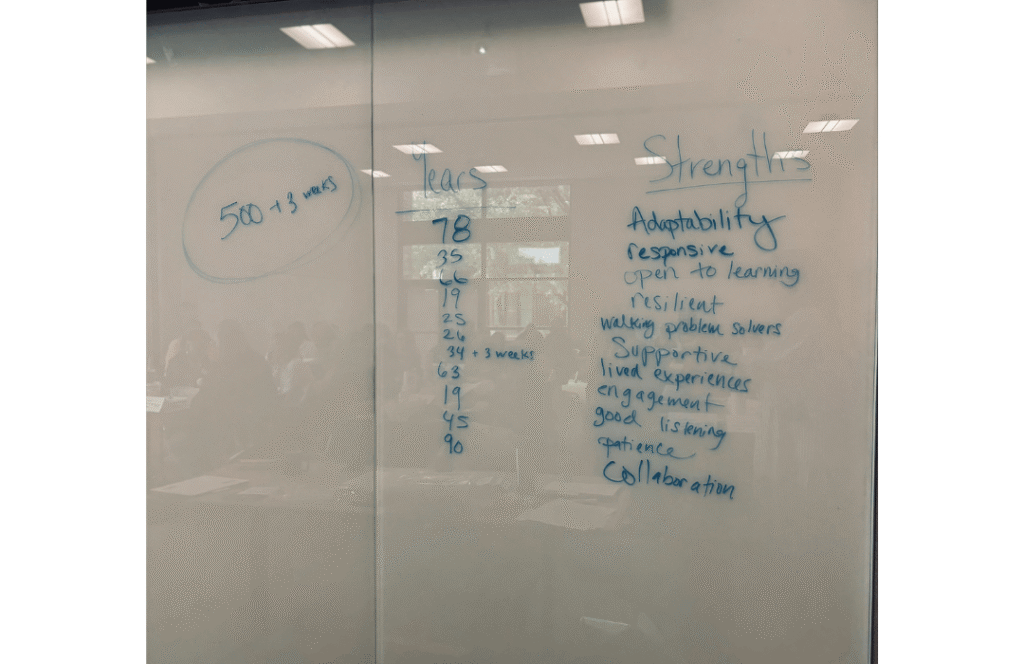 500 + 3 weeks
Years
78
35
66
19
25
26
34 + 3 weeks
63
19
45
90
Strengths
Adaptability
responsive
open to learning
resilient
walking problem solvers
Supportive
lived experiences
engagement
good listening
patience
Collaboration